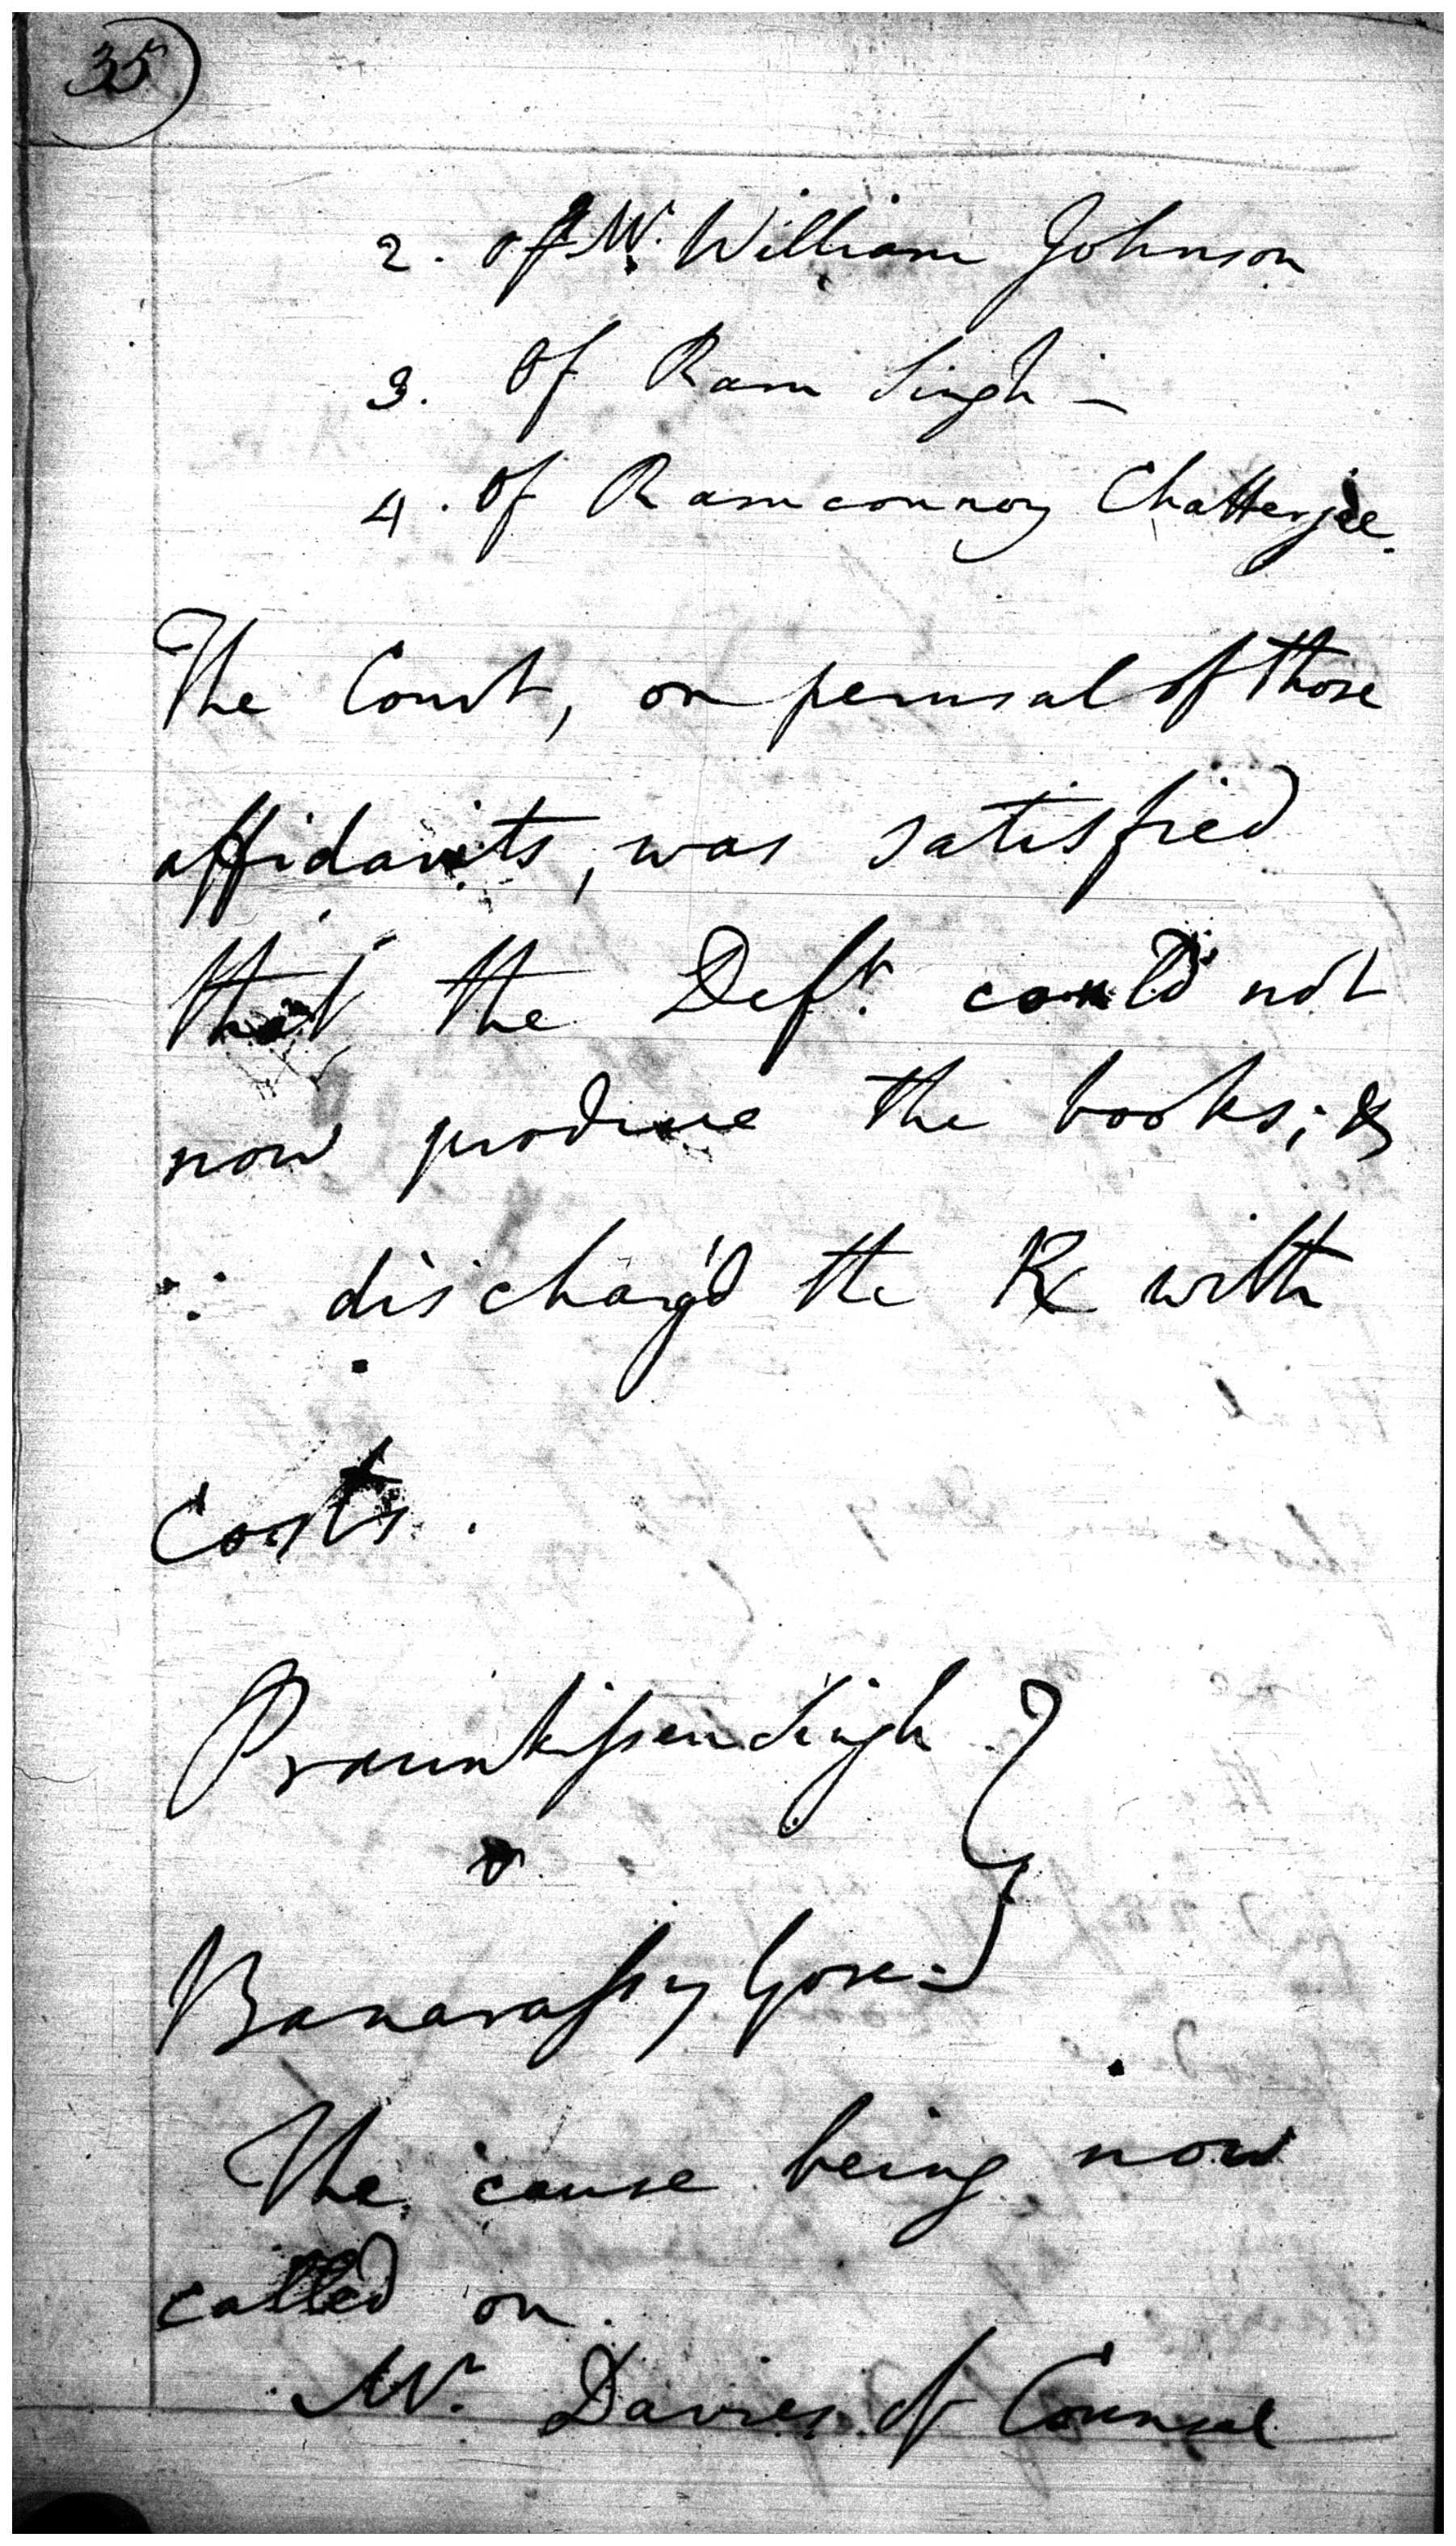 35
2. of Mr. William Johnson
3. Of Ram Singh —
4. Of Ramconnoy Chatterjee.
The Court, on perusal of those
affidavits, was satisfied
that the Deft. could not
now produce the books; &
∴ discharg'd the Rx with
Costs.
Praunkissen Singh
v.
Banarassy Gose
The cause being now
called on.
Mr. Davies of Counsel